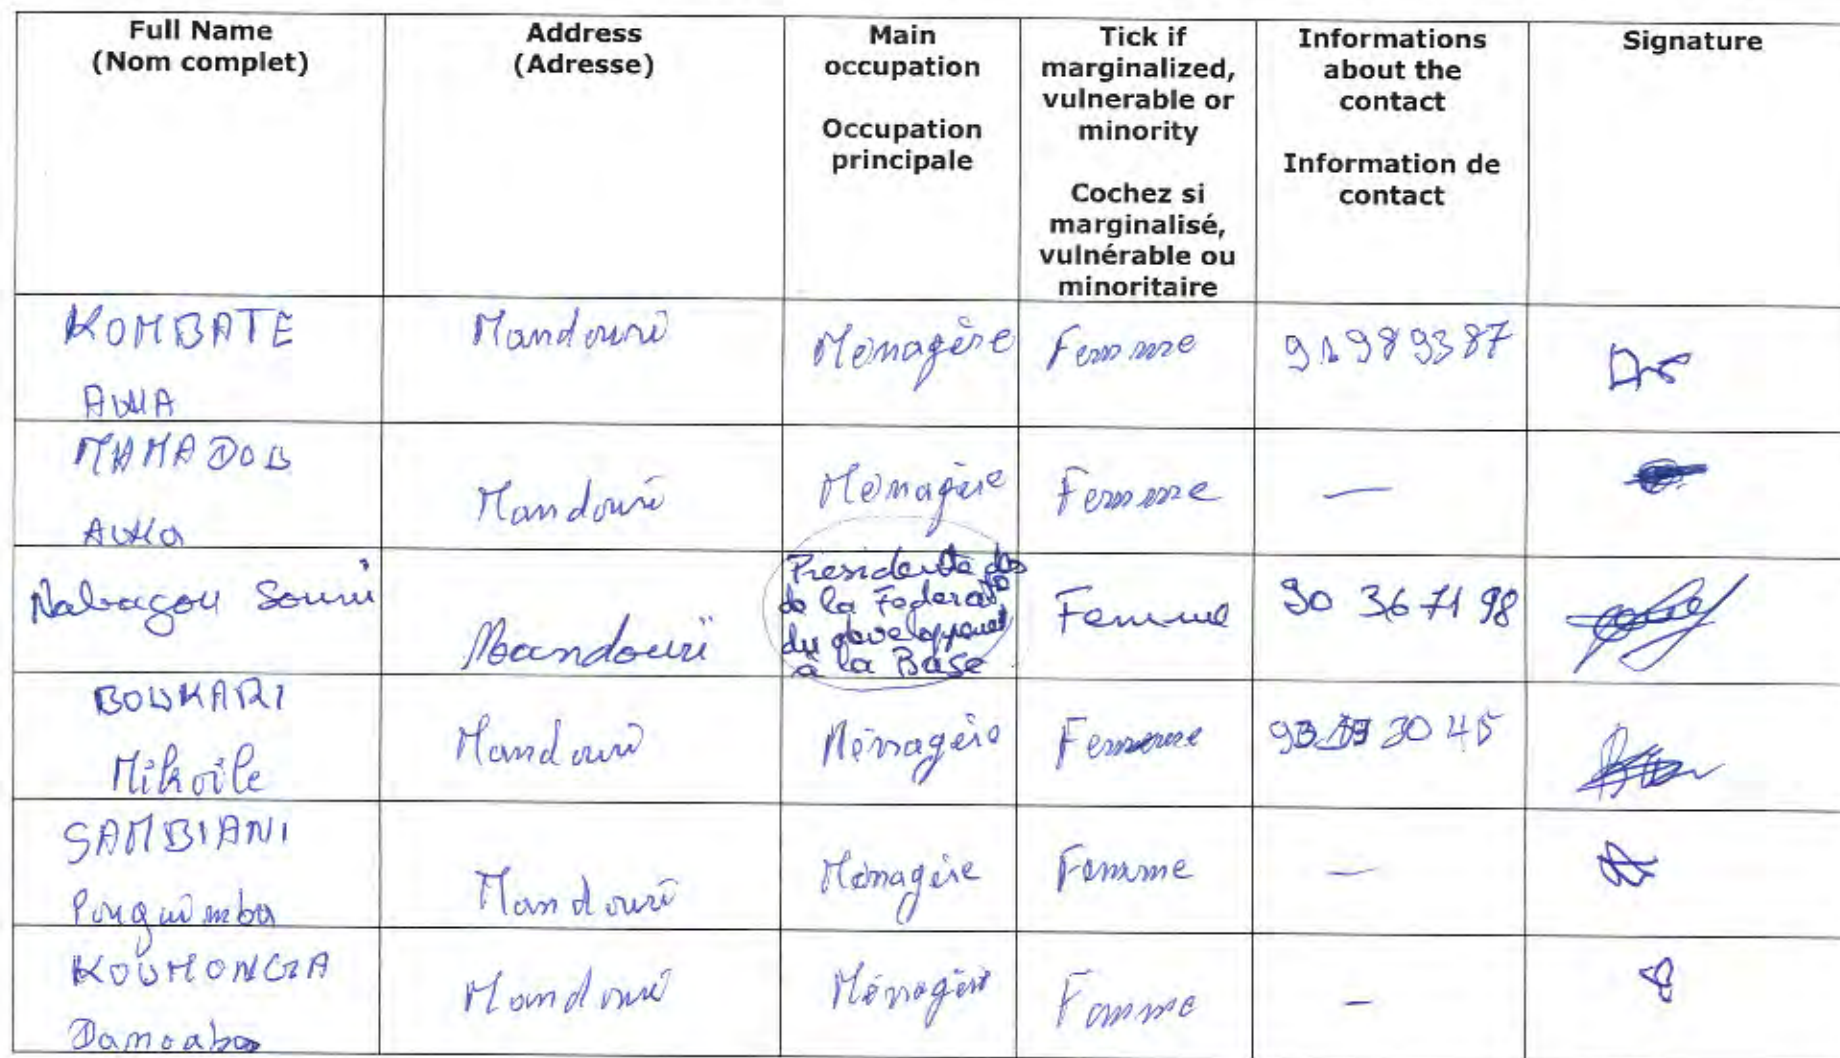 Full Name
(Nom complet)
Address
(Adresse)
Main
occupation
Occupation
principale
Tick if
marginalized,
vulnerable or
minority
Cochez si
marginalisé,
vulnérable ou
minoritaire
Informations
about the
contact
Information de
contact
Signature
KOMBATE
AWA
Mandouri
Ménagère
Femme
91989387
MAMADOU
Awa
Mandouri
Ménagère
Femme
—
Nabagou Souri
Mandouri
Presidente des
de la Federat°
du developpemet
à la Base
Femme
90 36 71 98
BOUKARI
Mikaïle
Mandouri
Ménagère
Femme
93 30 45
SAMBIANI
Pouguimba
Mandouri
Ménagère
Femme
—
KOUMONGA
Damoaba
Mandouri
Ménagère
Femme
—